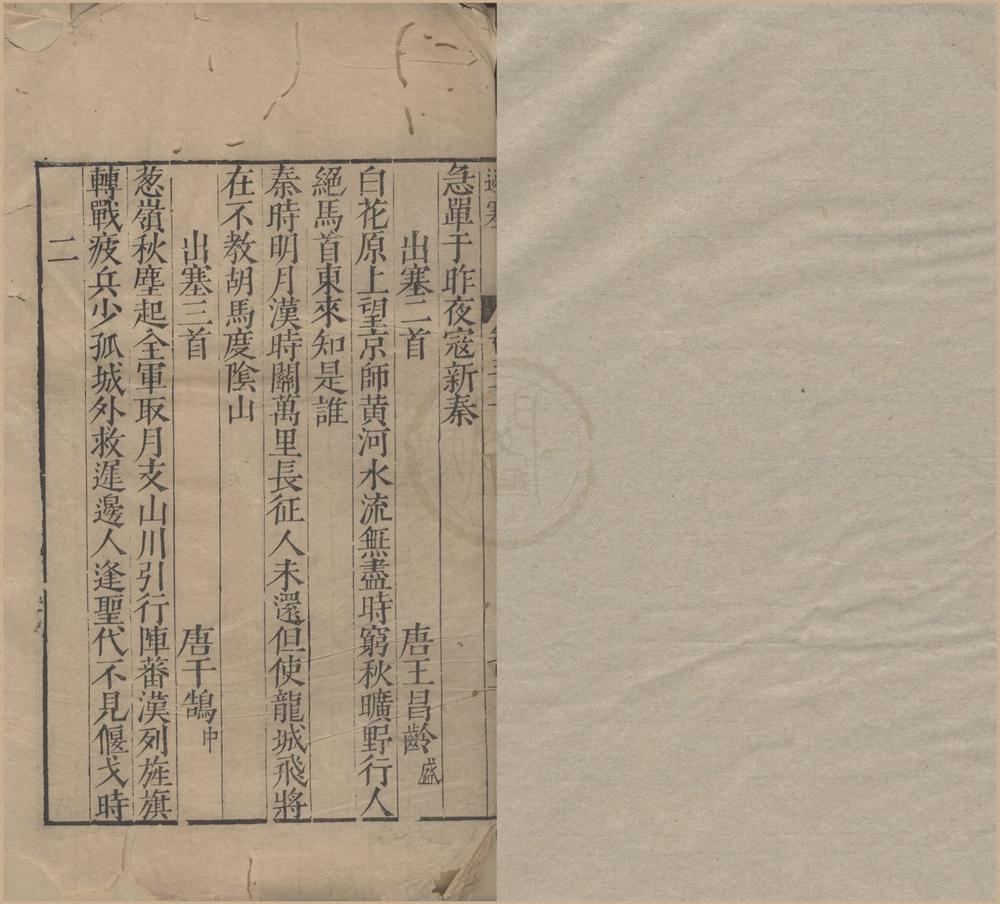 急單于昨夜寇新秦
出塞二首 唐王昌齡盛
白花原上望京師黃河水流無盡時窮秋曠野行人
絕馬首東來知是誰
秦時明月漢時關萬里長征人未還但使龍城飛將
在不教胡馬度隂山
出塞三首 唐于鵠中
葱嶺秋塵起全軍取月支山川引行陣蕃漢列旌旗
轉戰疲兵少孤城外救遲邊人逢聖代不見偃戈時
二